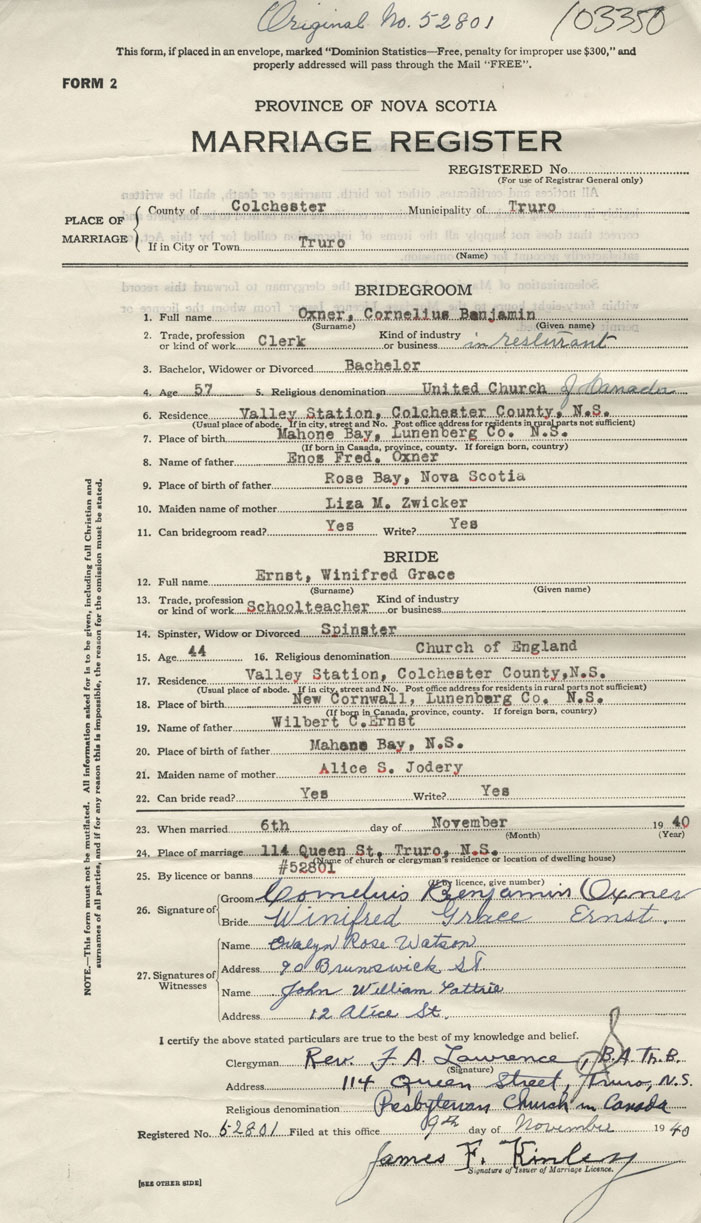 Original No. 52801
103350
This form, if placed in an envelope, marked "Dominion Statistics—Free, penalty for improper use $300," and
properly addressed will pass through the Mail "FREE".
FORM 2
PROVINCE OF NOVA SCOTIA
MARRIAGE REGISTER
REGISTERED No.
(For use of Registrar General only)
PLACE OF MARRIAGE
County of Colchester Municipality of Truro
If in City or Town Truro
(Name)
BRIDEGROOM
1. Full name Oxner, Cornelius Benjamin
(Surname) (Given name)
2. Trade, profession or kind of work Clerk Kind of industry or business in resturant
3. Bachelor, Widower or Divorced Bachelor
4. Age 57 5. Religious denomination United Church of Canada
6. Residence Valley Station, Colchester County, N.S.
(Usual place of abode. If in city, street and No. Post office address for residents in rural parts not sufficient)
7. Place of birth Mahone Bay, Lunenberg Co. N.S.
(If born in Canada, province, county. If foreign born, country)
8. Name of father Enos Fred. Oxner
9. Place of birth of father Rose Bay, Nova Scotia
10. Maiden name of mother Liza M. Zwicker
11. Can bridegroom read? Yes Write? Yes
BRIDE
12. Full name Ernst, Winifred Grace
(Surname) (Given name)
13. Trade, profession or kind of work Schoolteacher Kind of industry or business
14. Spinster, Widow or Divorced Spinster
15. Age 44 16. Religious denomination Church of England
17. Residence Valley Station, Colchester County,N.S.
(Usual place of abode. If in city, street and No. Post office address for residents in rural parts not sufficient)
18. Place of birth New Cornwall, Lunenberg Co. N.S.
(If born in Canada, province, county. If foreign born, country)
19. Name of father Wilbert C.Ernst
20. Place of birth of father Mahone Bay, N.S.
21. Maiden name of mother Alice S. Jodery
22. Can bride read? Yes Write? Yes
23. When married 6th day of November 1940
(Month) (Year)
24. Place of marriage 114 Queen St, Truro, N.S.
(Name of church or clergyman's residence or location of dwelling house)
25. By licence or banns #52801
(If by licence, give number)
26. Signature of
Groom Cornelius Benjamin Oxner
Bride Winifred Grace Ernst.
27. Signatures of Witnesses
Name Evalyn Rose Watson
Address 90 Brunswick St.
Name John William Pattrie
Address 12 Alice St.
I certify the above stated particulars are true to the best of my knowledge and belief.
Clergyman Rev. F. A. Lawrence, B.A. Th.B.
(Signature)
Address 114 Queen Street, Truro, N.S.
Religious denomination Presbyterian Church in Canada
Registered No. 52801 Filed at this office 9th day of November 1940
James F. Kinley
Signature of Issuer of Marriage Licence.
[SEE OTHER SIDE]
NOTE.—This form must not be mutilated. All information asked for is to be given, including full Christian and
surnames of all parties, and if for any reason this is impossible, the reason for the omission must be stated.